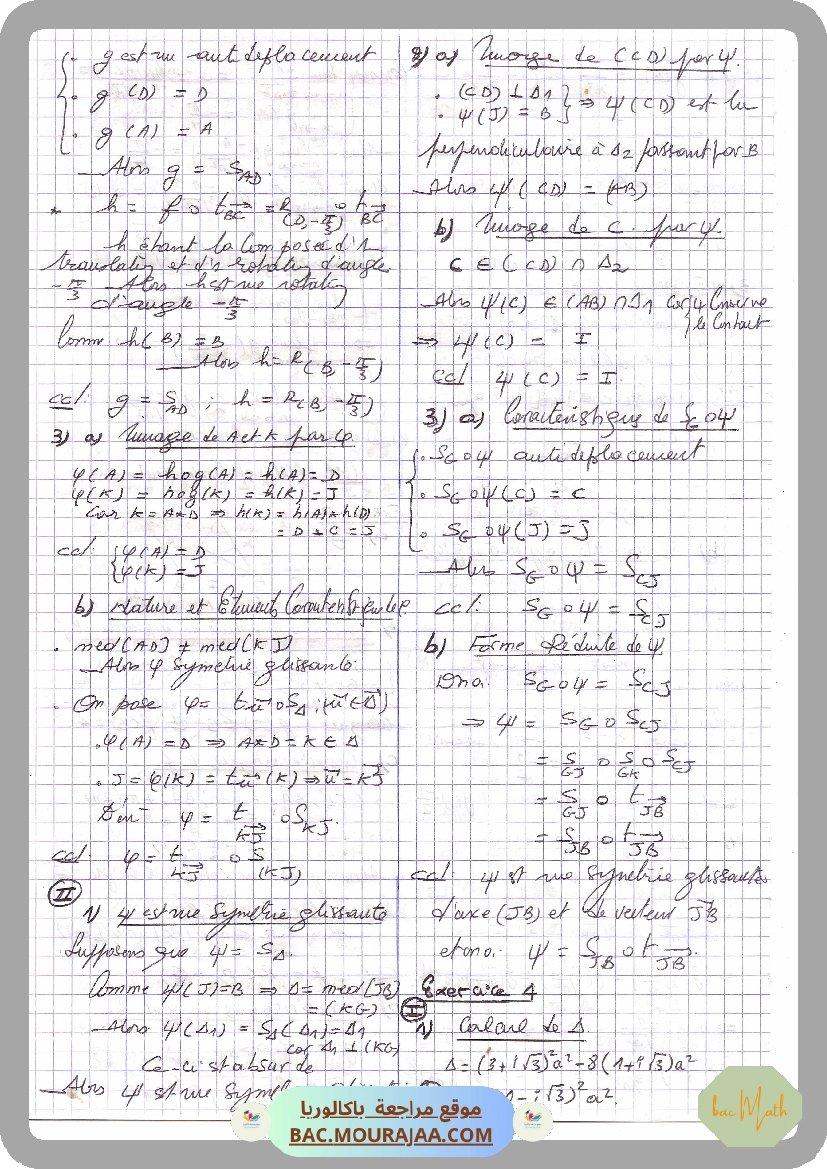 . g est un antidéplacement
. g (D) = D
. g (A) = A
Alors g = S_AD.
* h = f o t_BC→ = R(D, -π/3) o t_BC→
h étant la Composée d'1
translation et d'1 rotation d'angle
-π/3 Alors h est une rotation
d'angle -π/3
Comme h(B) = B
Alors h = R(B, -π/3)
ccl: g = S_AD ; h = R(B, -π/3)
3) a) Image de A et K par φ
φ(A) = hog(A) = h(A) = D
φ(K) = hog(K) = h(K) = J
Car K = A*D ⇒ h(K) = h(A)*h(D)
= D * C = J
ccl: {φ(A) = D
φ(K) = J
b) Nature et Eléments Caractéristiques de φ
. med[AD] ≠ med[KJ]
Alors φ Symetrie glissante
. On pose φ = t_u→ o S_Δ ; (u→ ∈ Δ→)
. φ(A) = D ⇒ A*D = K ∈ Δ
. J = φ(K) = t_u→ (K) ⇒ u→ = KJ→
D'où φ = t_KJ→ o S_KJ.
ccl: φ = t_KJ→ o S_(KJ)
II
1) ψ est une Symétrie glissante
Supposons que ψ = S_Δ.
Comme ψ(J) = B ⇒ Δ = med[JB]
= (KG)
Alors ψ(Δ1) = S_Δ(Δ1) = Δ1
car Δ1 ⊥ (KG)
Ce-ci st absurde
Alors ψ st une Symé
2) a) Image de (CD) par ψ.
. (CD) ⊥ Δ1
. ψ(J) = B } ⇒ ψ(CD) est la
perpendiculaire à Δ2 passant par B
Alors ψ(CD) = (AB)
b) Image de C par ψ.
C ∈ (CD) ∩ Δ2
Alors ψ(C) ∈ (AB) ∩ Δ1 car ψ Conserve
le Contact
⇒ ψ(C) = I
ccl ψ(C) = I.
3) a) Caractéristique de S_G o ψ
. S_G o ψ antideplacement
. S_G o ψ(C) = C
. S_G o ψ(J) = J
Alors S_G o ψ = S_CJ
ccl: S_G o ψ = S_CJ
b) Forme Réduite de ψ
On a: S_G o ψ = S_CJ
⇒ ψ = S_G o S_CJ
= S_GJ o S_GK o S_CJ
= S_GJ o t_JB→
= S_JB o t_JB→
ccl: ψ st une symétrie glissante
d'axe (JB) et de vecteur JB→
et on a: ψ = S_JB o t_JB→.
Exercice 4
I
1) Calcul de Δ
Δ = (3+i√3)²a² - 8(1+i√3)a²
1-i√3)²a².
موقع مراجعة باكالوريا
BAC.MOURAJAA.COM
bac Math